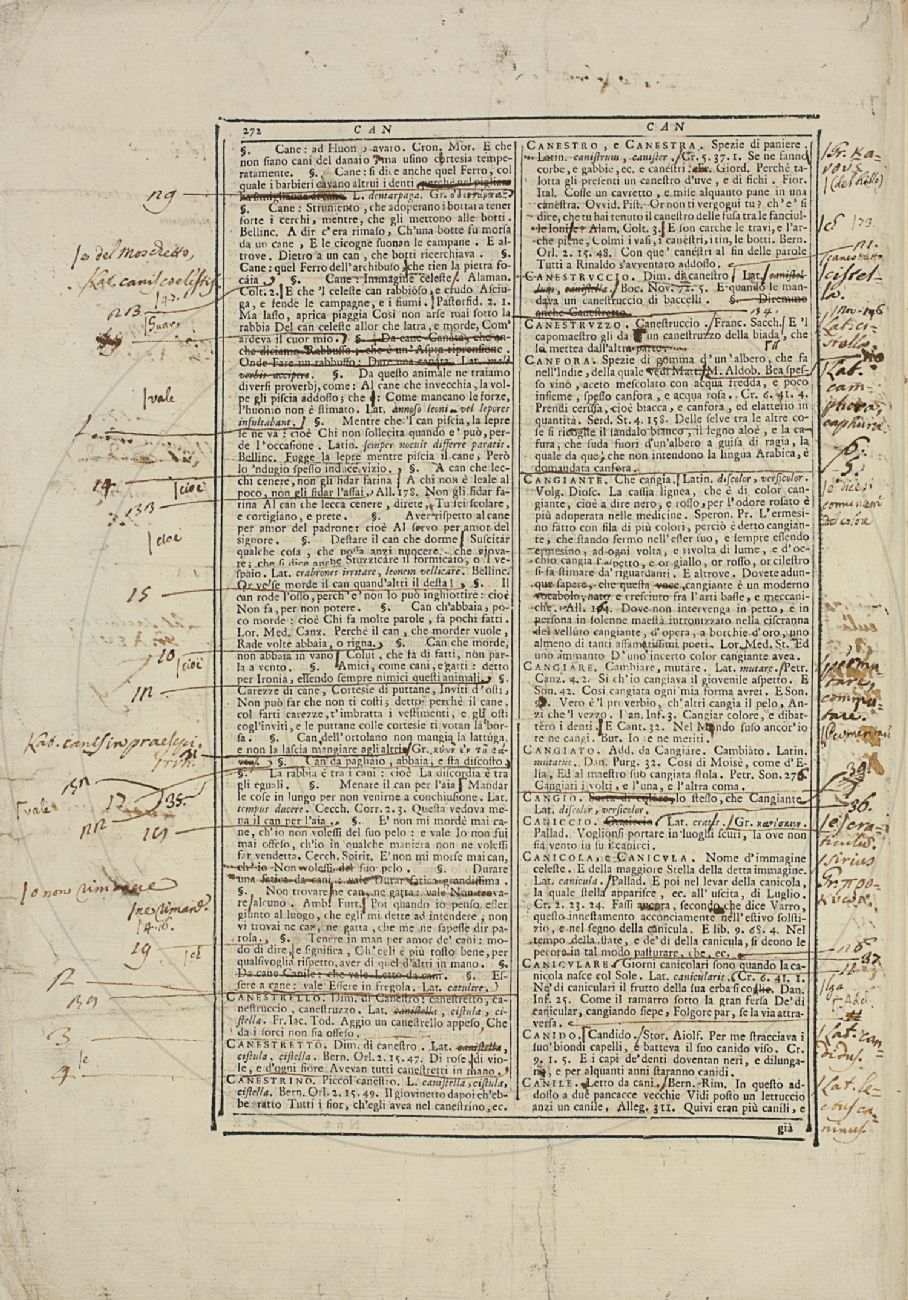 272 CAN
§. Cane: ad Huon avaro. Cron. Mor. E che
non siano cani del danaio ma usino cortesia tempe-
ratamente. §. Cane: si dice anche quel Ferro, col
quale i barbieri cavano altrui i denti
L. dentarpaga. Gr.
§. Cane: Strumento, che adoperano i bottai a tener
forte i cerchi, mentre, che gli mettono alle botti.
Bellinc. A dir c'era rimaso, Ch'una botte fu morsa
da un cane, E le cicogne suonan le campane. E al-
trove. Dietro a un can, che botti ricerchiava. §.
Cane: quel Ferro dell'archibuso che tien la pietra fo-
caia. §. Cane: Immagine celeste. Alaman.
Colt. 2. E che 'l celeste can rabbioso, e crudo Asciu-
ga, e fende le campagne, e i fiumi. Pastorfid. 2. 1.
Ma lasso, aprica piaggia Così non arse mai sotto la
rabbia Del can celeste allor che latra, e morde, Com'
ardeva il cuor mio. §. Da cane Canata, che an-
che diciamo Rabbuffo; che è un'Aspra riprensione.
Onde Fare un rabbuffo: Dare una canata. Lat. mal
verbis accipere. §. Da questo animale ne traiamo
diversi proverbj, come: Al cane che invecchia, la vol-
pe gli piscia addosso; che è: Come mancano le forze,
l'huomo non è stimato. Lat. annoso leoni vel lepores
insultabant. §. Mentre che 'l can piscia, la lepre
se ne va: cioè Chi non sollecita quando e' può, per-
de l'occasione. Latin. semper nocuit differre paratis.
Bellinc. Fugge la lepre mentre piscia il cane, Però
lo 'ndugio spesso indice vizio. §. A can che lec-
chi cenere, non gli fidar farina A chi non è leale al
poco, non gli fidar l'assai. All. 178. Non gli fidar fa-
rina Al can che lecca cenere, direte, Tu sei scolare,
e cortigiano, e prete. §. Aver rispetto al cane
per amor del padrone: cioè Al servo per amor del
signore. §. Destare il can che dorme Suscitar
qualche cosa, che possa anzi nuocere, che giova-
re; che si dice anche Stuzzicare il formicaio, o 'l ve-
spaio. Lat. crabrones irritare, leonem vellicare. Bellinc.
Or ve'se morde il can quand'altri il desta! §. Il
can rode l'osso, perch'e' non lo può inghiottire: cioè
Non fa, per non potere. §. Can ch'abbaia, po-
co morde: cioè Chi fa molte parole, fa pochi fatti.
Lor. Med. Canz. Perchè il can, che morder vuole,
Rade volte abbaia, o rigna. §. Can che morde,
non abbaia in vano Colui, che fa di fatti, non par-
la a vento. §. Amici, come cani, e gatti: detto
per Ironia, essendo sempre nimici questi animali. §.
Carezze di cane, Cortesie di puttane, Inviti d'osti,
Non può far che non ti costi; detto: perchè il cane,
col farti carezze, t'imbratta i vestimenti, e gli osti
cogl'inviti, e le puttane colle cortesie ti votan la bor-
sa. §. Can dell'ortolano non mangia la lattuga,
e non la lascia mangiare agli altri Gr.
§. Can da pagliaio, abbaia, e sta discosto
§. La rabbia è tra i cani: cioè La discordia è tra
gli eguali. §. Menare il can per l'aia Mandar
le cose in lungo per non venirne a conchiusione. Lat.
tempus ducere. Cecch. Corr. 2. 3. Questa vedova me-
na il can per l'aia. §. E' non mi mordè mai ca-
ne, ch'io non volessi del suo pelo: e vale Io non fui
mai offeso, ch'io in qualche maniera non ne volessi
far vendetta. Cecch. Spirit. E'non mi morse mai can,
ch'io Non volessi del suo pelo. §. Durare
una fatica da cani: vale Durar fatica grandissima.
§. Non trovare ne can, ne gatta: vale Non trova-
re alcuno. Amb. Furt. Poi quando io penso esser
giunto al luogo, che egli mi dette ad intendere, non
vi trovai ne car, ne gatta, che me ne sapesse dir pa-
rola. §. Tenere in man per amor de' cani: mo-
do di dire, e significa, Ch'egli è più tosto bene, per
qualsivoglia rispetto, aver di quel d'altri in mano. §.
Da cane Canile: che vale Letto da cani. §. Es-
sere a cane: vale Essere in fregola. Lat. catulire.
CANESTRELLO. Dim. di Canestro: canestretto, ca-
nestruccio, canestruzzo. Lat. canistella, cistula, ci-
stella. Fr. Iac. Tod. Aggio un canestrello appeso, Che
da i sorci non sia offeso.
CANESTRETTO. Dim. di canestro. Lat. canistella,
cistula, cistella. Bern. Orl. 2. 15. 47. Di rose, di vio-
le, e d'ogni fiore Avevan tutti canestretti in mano.
CANESTRINO. Piccol canestro. L. canistella, cistula,
cistella. Bern. Orl. 2. 15. 49. Il giovinetto dapoi ch'eb-
be ratto Tutti i fior, ch'egli avea nel canestrino, ec.
CAN
CANESTRO, e CANESTRA. Spezie di paniere.
Latin. canistrum, canister. Cr. 5. 37. 1. Se ne fanno
corbe, e gabbie, ec. e canestri Giord. Perchè ta-
lotta gli presenti un canestro d'uve, e di fichi. Fior.
Ital. Colse un cavetto, e mise alquanto pane in una
canestra. Ovvid. Pist. Or non ti vergogni tu? ch' e' si
dice, che tu hai tenuto il canestro delle fusa tra le fanciul-
le Ionise? Alam. Colt. 3. E son carche le travi, e l'ar-
che piene, Colmi i vasi, i canestri, i tin, le botti. Bern.
Orl. 2. 15. 48. Con que' canestri al fin delle parole
Tutti a Rinaldo s'avventaro addosso.
CANESTRUCCIO. Dim. di canestro Lat. canistel-
lum, canistella. Boc. Nov. 72. 5. E quando le man-
dava un canestruccio di baccelli. §. Diremmo
anche Canestretto.
CANESTRVZZO. Canestruccio. Franc. Sacch. E 'l
capomaestro gli dà un canestruzzo della biada, che
la mettea dall'altra parte.
CANFORA. Spezie di gomma d'un'albero, che fa
nell'Indie, della quale vedi Matt. M. Aldob. Bea spes-
so vino, aceto mescolato con acqua fredda, e poco
insieme, spesso canfora, e acqua rosa. Cr. 6. 41. 4.
Prendi cerusa, cioè biacca, e canfora, ed elatterio in
quantità. Serd. St. 4. 158. Delle selve tra le altre co-
se si ricoglie il sandalo bianco, il legno aloè, e la ca-
fura, che suda fuori d'un'albero a guisa di ragia, la
quale da que', che non intendono la lingua Arabica, è
domandata canfora.
CANGIANTE. Che cangia. Latin. discolor, versicolor.
Volg. Diosc. La cassia lignea, che è di color can-
giante, cioè a dire nero, e rosso, per l'odore rosato è
più adoperata nelle medicine. Speron. Pr. L'ermesi-
no fatto con fila di più colori, perciò è detto cangian-
te, che stando fermo nell'esser suo, e sempre essendo
ermesino, ad ogni volta, e rivolta di lume, e d'oc-
chio cangia l'aspetto, e or giallo, or rosso, or cilestro
si fa stimare da' riguardanti. E altrove. Dovete adun-
que sapere, che questa voce cangiante è un moderno
vocabolo, nato e cresciuto fra l'arti basse, e meccani-
che. All. 194. Dove non intervenga in petto, e in
persona in solenne maestà intronizzato nella ciscranna
del velluto cangiante, d'opera, a borchie d'oro, uno
almeno di tanti affamatissimi poeti. Lor. Med. St. Ed
uno ammanto D'uno incerto color cangiante avea.
CANGIARE. Cambiare, mutare. Lat. mutare. Petr.
Canz. 4. 2. Si ch'io cangiava il giovenile aspetto. E
Son. 42. Cosi cangiata ogni mia forma avrei. E Son.
Vero è 'l proverbio, ch'altri cangia il pelo, An-
zi che 'l vezzo. Dan. Inf. 3. Cangiar colore, e dibat-
tero i denti. E Cant. 32. Nel Mondo suso ancor'io
te ne cangi. But. Io te ne meriti.
CANGIATO. Add. da Cangiare. Cambiato. Latin.
mutatus. Dan. Purg. 32. Cosi di Moisè, come d'E-
lia, Ed al maestro suo cangiata stola. Petr. Son. 276.
Cangiati i volti, e l'una, e l'altra coma.
CANGIO. Sorta di colore, lo stesso, che Cangiante
Lat. discolor, versicolor.
CANICCIO. Graticcio Lat. crates. Gr.
Pallad. Voglionsi portare in luoghi scuri, la ove non
sia vento in su i canicci.
CANICOLA, e CANICVLA. Nome d'immagine
celeste. E della maggiore Stella della detta immagine.
Lat. canicula. Pallad. E poi nel levar della canicola,
la quale stella apparisce, ec. all'uscita, di Luglio.
Cr. 2. 23. 24. Fassi ancora, secondo che dice Varro,
questo innestamento acconciamente nell'estivo solsti-
zio, e nel segno della canicula. E lib. 9. 68. 4. Nel
tempo della state, e de' dì della canicula, si deono le
pecore in tal modo pasturare, che, ec.
CANICVLARE. Giorni canicolari sono quando la ca-
nicola nasce col Sole. Lat. canicularis. Cr. 6. 41. 1.
Ne'dì caniculari il frutto della sua erba si coglie. Dan.
Inf. 25. Come il ramarro sotto la gran fersa De'dì
canicular, cangiando siepe, Folgore par, se la via attra-
versa.
CANIDO. Candido. Stor. Aiolf. Per me stracciava i
suo'biondi capelli, e batteva il suo canido viso. Cr.
9. 1. 5. E i capi de'denti doventan neri, e dilunga-
no, e per alquanti anni staranno canidi.
CANILE. Letto da cani. Bern. Rim. In questo ad-
dosso a due pancacce vecchie Vidi posto un'lettuccio
anzi un canile. Alleg. 311. Quivi eran più canili, e
già
ng
del moschetto,
Kat. canis coelestis
213
vale
14
cioè
1313
cioè
15
10
cioè
112
Kab. canis in praesepi
vale
17
35.
19
Io non rimanere
19
12
139
3
4
34.
36.
37.
Sirius